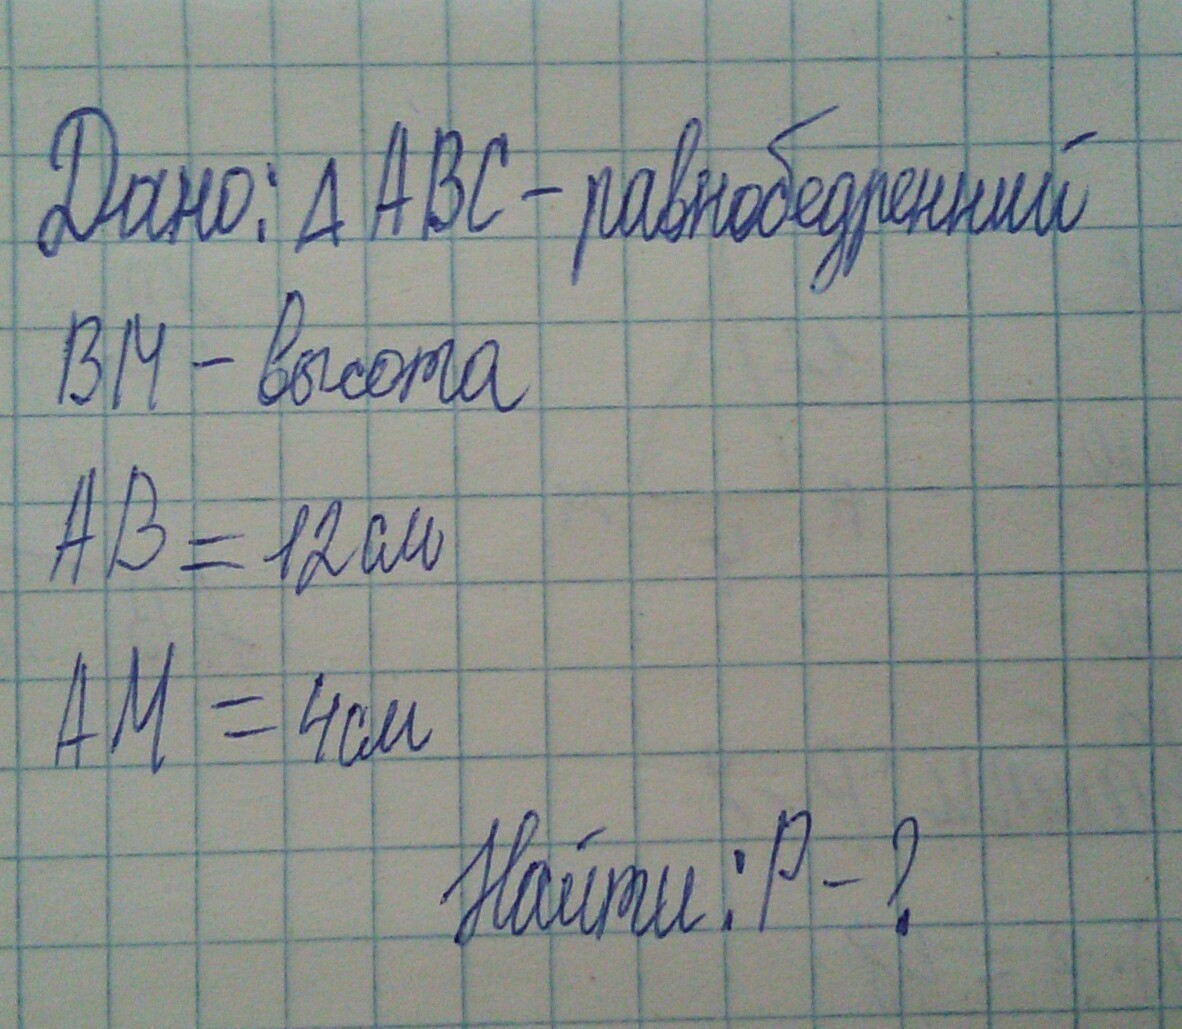 Дано: Δ ABC - равнобедренний
BM - высота
AB = 12 см
AM = 4 см
Найти: P - ?